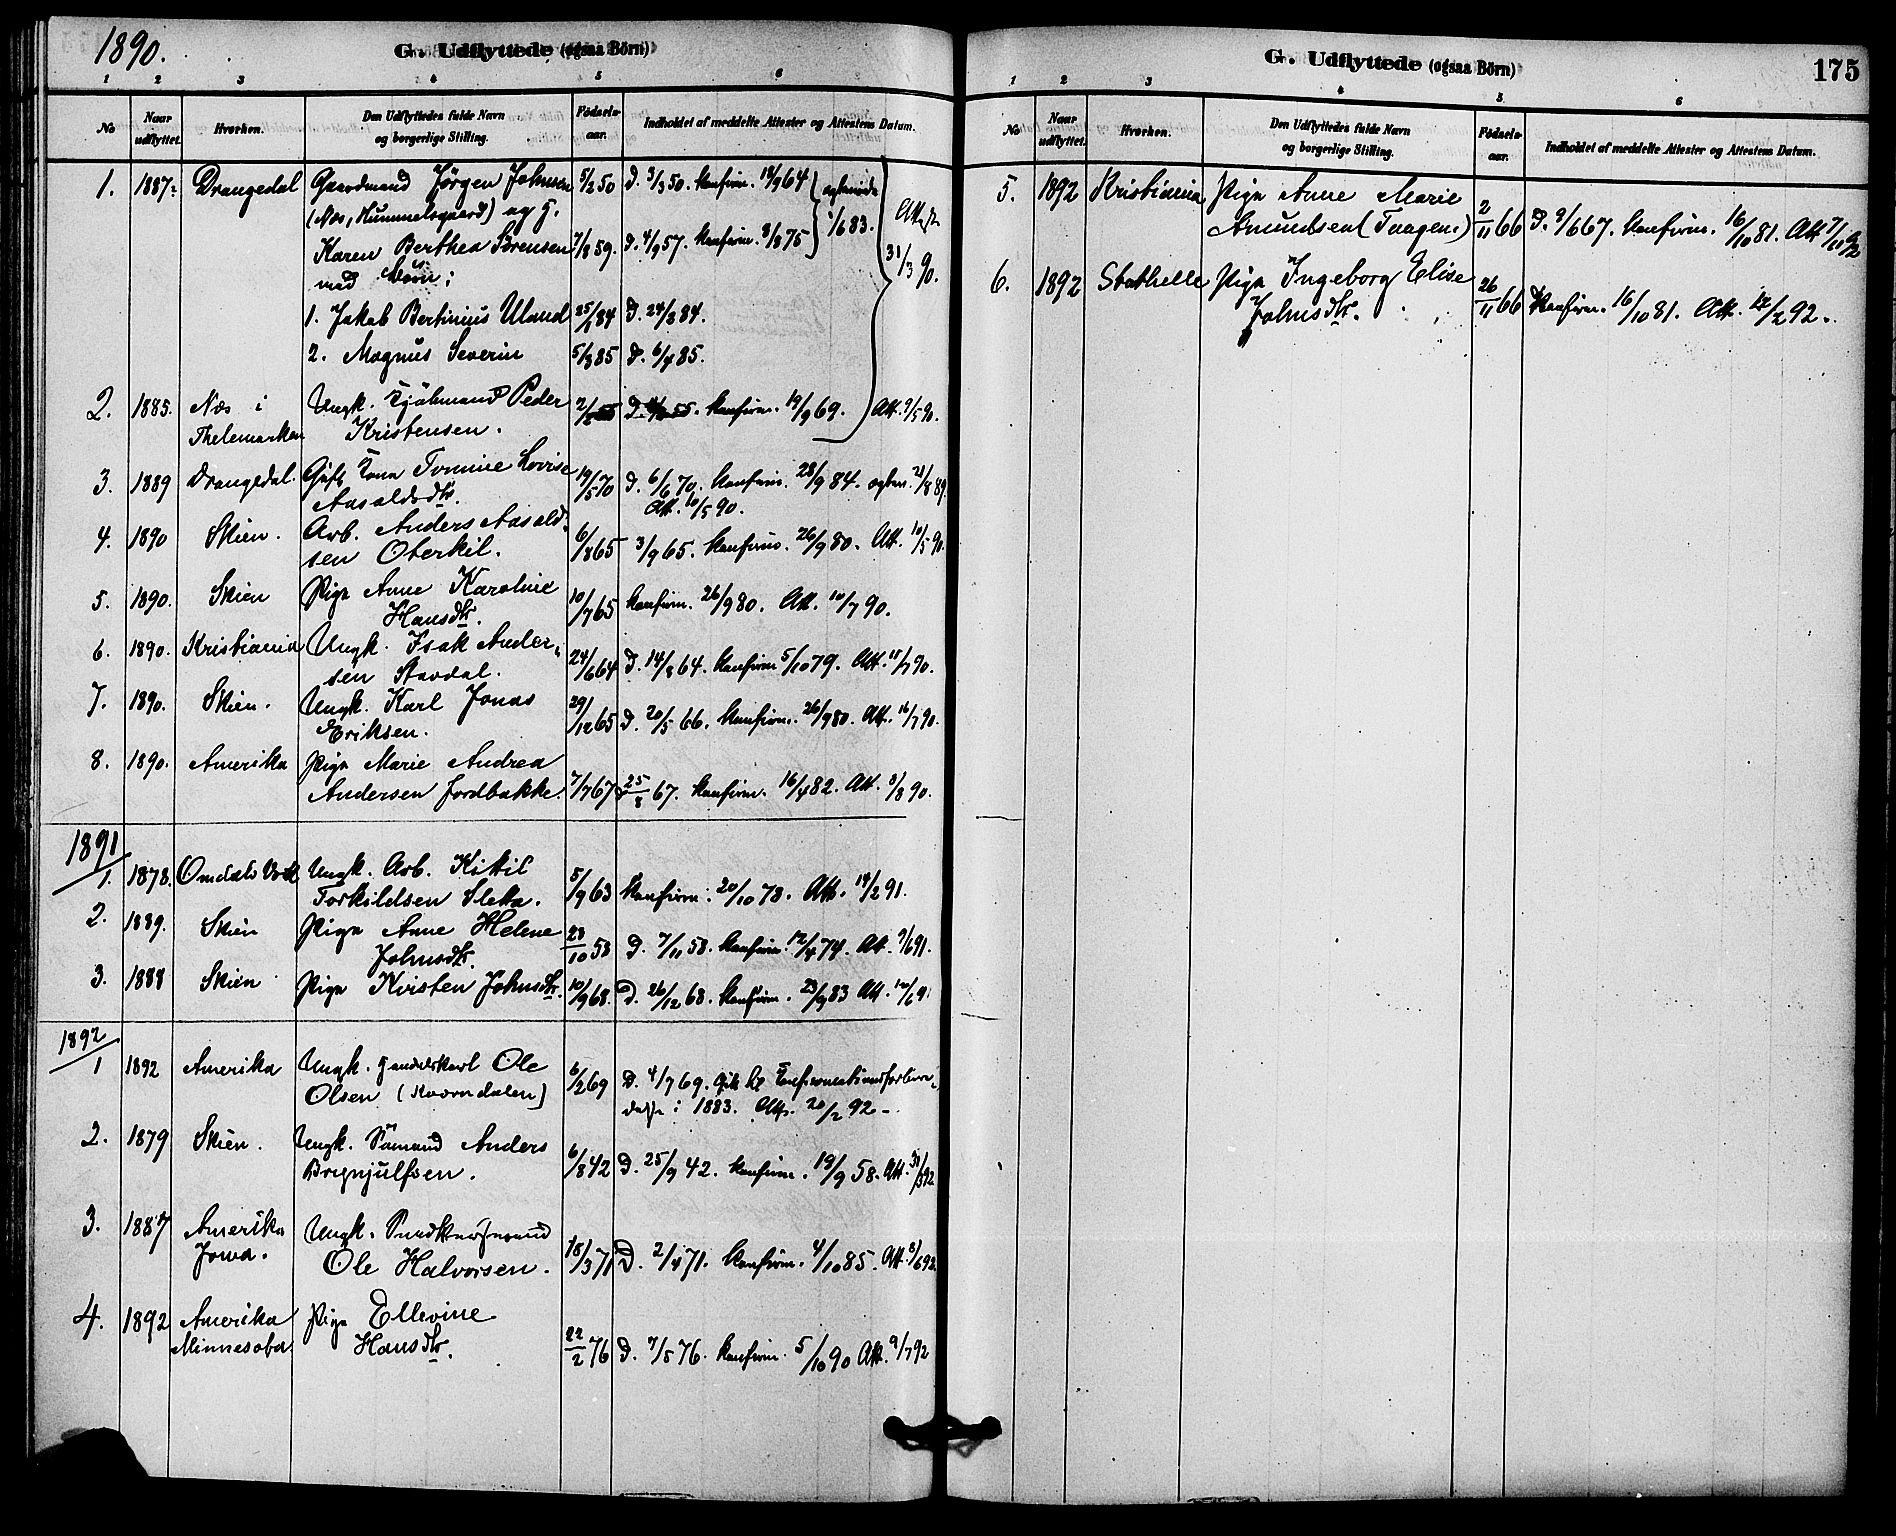 1890.
G. Udflyttede (ogsaa Börn)
1 2 3 4 5 6
No Naar udflyttet. Hvorhen. Den Udflyttedes fulde Navn og borgerlige Stilling. Födsels-aar. Indholdet af meddelte Attester og Attestens Datum.
1. 1887. Drangedal Gaardmand Jörgen Johnsen 5/2 50 D. 3/3 50. Konfirm. 18/9 64
(Næs, Hummelsgaard) og H.
Karen Berthea Sörensen 7/8 59. D. 4/9 57. Konfirm. 3/8 75 1/6 83. Attest 31/3 90.
med Börn:
1. Jakob Bertinius Uland 25/1 84 D. 24/3 84.
2. Magnus Severin 5/3 85 D. 6/4 85.
2. 1885. Næs i Ungk. Peder D. Konfirm. 19/9 69. Att. 9/5 90.
Thelemarken Kristensen.
3. 1889 Drangedal. Gift Kone Tomine Lovise 19/5 70 D. 6/6 70. Konfirm. 28/9 84. 21/8 89.
Aasoldsdtr. Att. 10/5 90.
4. 1890 Skien. Arb. Anders Aasold-
sen Oterkil. 6/8 65 3/9 65. Konfirm. 26/9 80. Att. 10/5 90.
5. 1890. Skien Pige Anne Karoline
Hansdtr. 10/7 65 Konfirm. 26/9 80. Att. 10/7 90.
6. 1890. Kristiania Ungk. Isak Ander-
sen Stavdal. 24/6 64 D. 14/8 64. Konfirm 5/10 79. Att. 11/7 90.
7. 1890. Skien. Ungk. Karl Jonas
Eriksen. 29/12 65 D. 20/5 66. Konfirm. 26/9 80. Att. 16/7 90.
8. 1890. Amerika Pige Marie Andrea
Andersen Jordbakke. 7/7 67 25/8 67. Konfirm. 16/4 82. Att. 8/8 90.
1891
1. 1878. Omdals Verk Ungk. Arb. Kitil
Torkildsen Sletta. 5/9 63 Konfirm. 20/10 78. Att. 14/2 91.
2. 1889. Skien Pige Anne Helene
Johnsdtr. 28/10 58 D. 7/11 58. Konfirm. 12/4 74. Att. 9/6 91.
3. 1888 Skien Pige Kristen Johnsdtr. 10/9 68. D. 26/12 68. Konfirm. 23/9 83 Att.
1892
1 1892 Amerika Ungk. Ole 6/2 69 D. 4/7 69.
Olsen i 1883. Att. 20/2 92.
2. 1879 Skien. Ungk. Sömand Anders
Brynjulfsen. 6/8 42 D. 25/9 42. Konfirm. 19/9 58. Att.
3. 1887 Amerika Ungk.
Jowa. Ole Halvorsen. 18/3 71 D. 2/4 71. Konfirm. 4/10 85. Att. 8/6 92.
4. 1892 Amerika Pige Ellevine
Minnesota Hansdtr. 22/2 76 D. 7/5 76. Konfirm. 5/10 90 Att. 9/7 92
G. Udflyttede (ogsaa Börn) 175
1 2 3 4 5 6
No Naar udflyttet. Hvorhen. Den Udflyttedes fulde Navn og borgerlige Stilling. Födsels-aar. Indholdet af meddelte Attester og Attestens Datum.
5. 1892 Kristiania Pige Anne Marie
Amundsen (Taagen.) 2/11 66 D. 9/6 67. Konfirm. 16/10 81. Att 7/11 92
6. 1892 Stathelle Pige Ingeborg Elise
Johnsdtr. 26/11 66 Konfirm. 16/10 81. Att. 12/2 92.